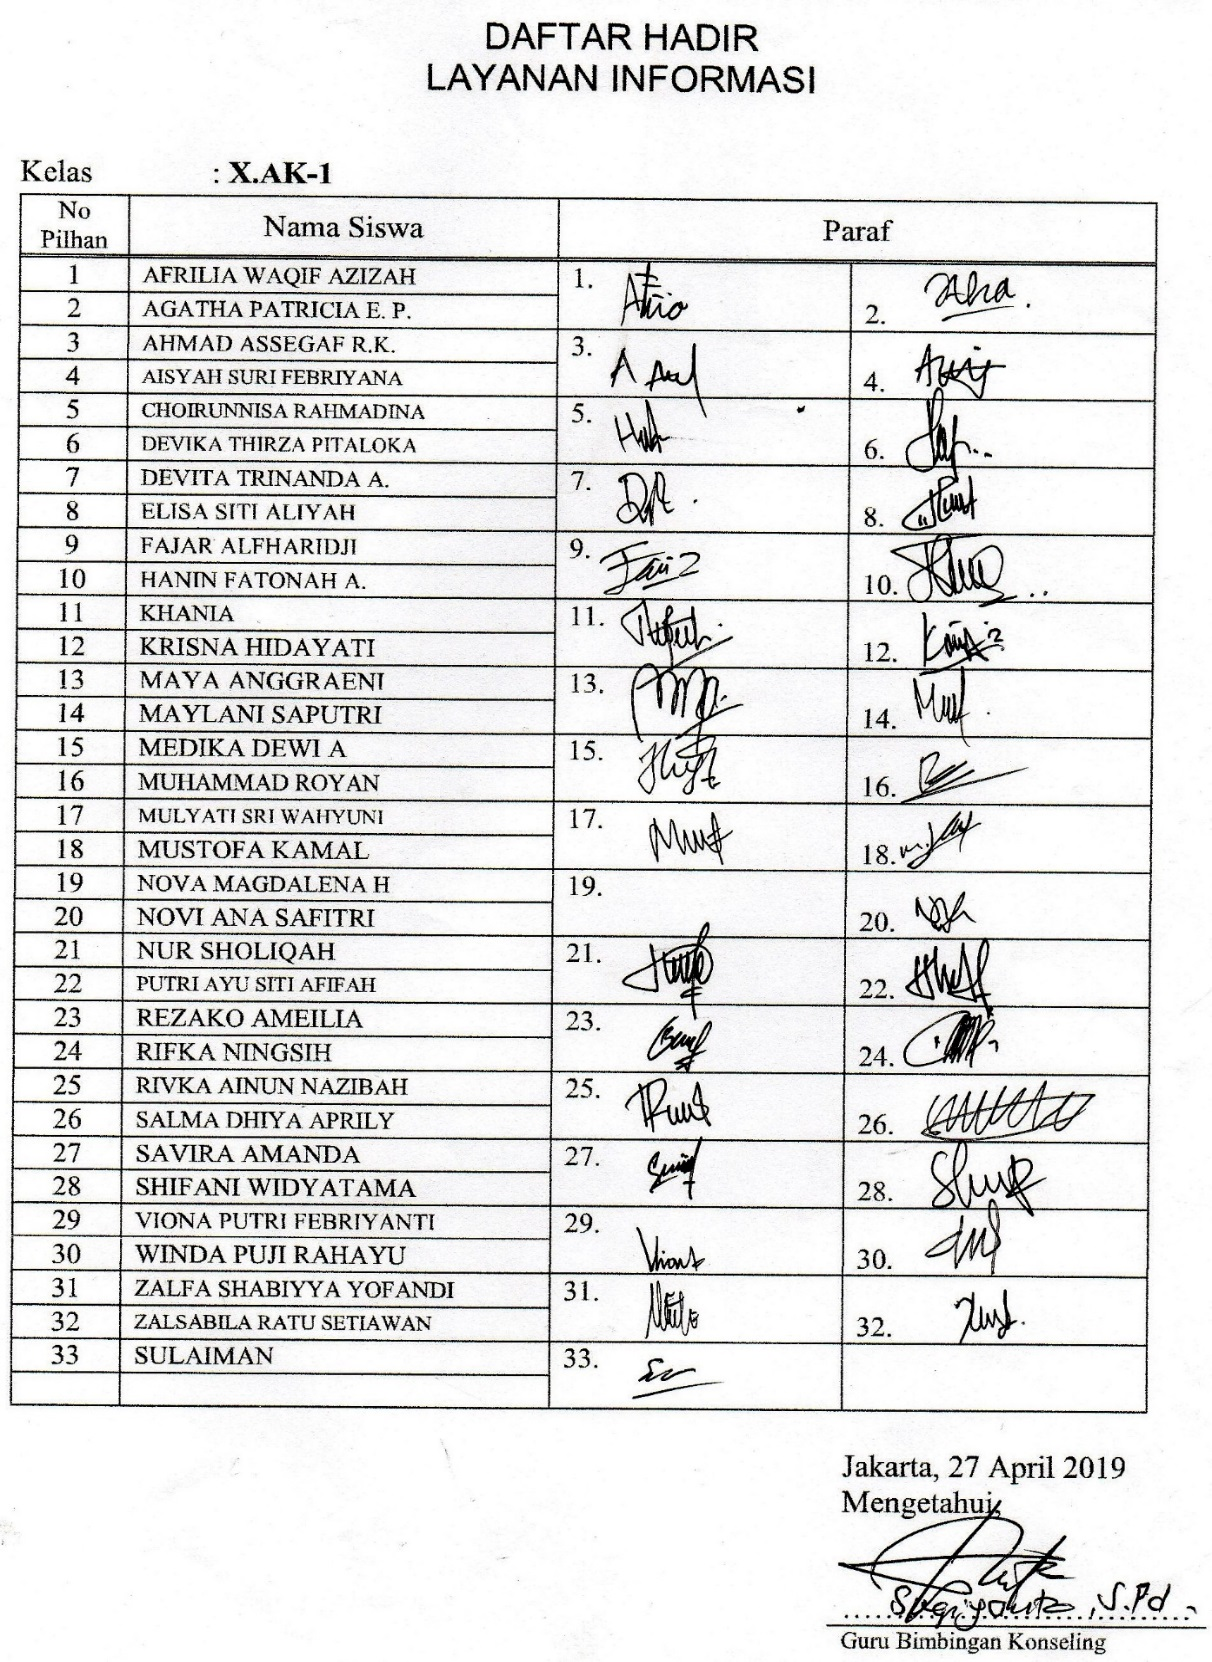 DAFTAR HADIR
LAYANAN INFORMASI
Kelas : X.AK-1
No Pilhan Nama Siswa Paraf
1 AFRILIA WAQIF AZIZAH 1.
2 AGATHA PATRICIA E. P. 2.
3 AHMAD ASSEGAF R.K. 3.
4 AISYAH SURI FEBRIYANA 4.
5 CHOIRUNNISA RAHMADINA 5.
6 DEVIKA THIRZA PITALOKA 6.
7 DEVITA TRINANDA A. 7.
8 ELISA SITI ALIYAH 8.
9 FAJAR ALFHARIDJI 9.
10 HANIN FATONAH A. 10.
11 KHANIA 11.
12 KRISNA HIDAYATI 12.
13 MAYA ANGGRAENI 13.
14 MAYLANI SAPUTRI 14.
15 MEDIKA DEWI A 15.
16 MUHAMMAD ROYAN 16.
17 MULYATI SRI WAHYUNI 17.
18 MUSTOFA KAMAL 18.
19 NOVA MAGDALENA H 19.
20 NOVI ANA SAFITRI 20.
21 NUR SHOLIQAH 21.
22 PUTRI AYU SITI AFIFAH 22.
23 REZAKO AMEILIA 23.
24 RIFKA NINGSIH 24.
25 RIVKA AINUN NAZIBAH 25.
26 SALMA DHIYA APRILY 26.
27 SAVIRA AMANDA 27.
28 SHIFANI WIDYATAMA 28.
29 VIONA PUTRI FEBRIYANTI 29.
30 WINDA PUJI RAHAYU 30.
31 ZALFA SHABIYYA YOFANDI 31.
32 ZALSABILA RATU SETIAWAN 32.
33 SULAIMAN 33.
Jakarta, 27 April 2019
Mengetahui,
Sugiyanto, S.Pd
Guru Bimbingan Konseling